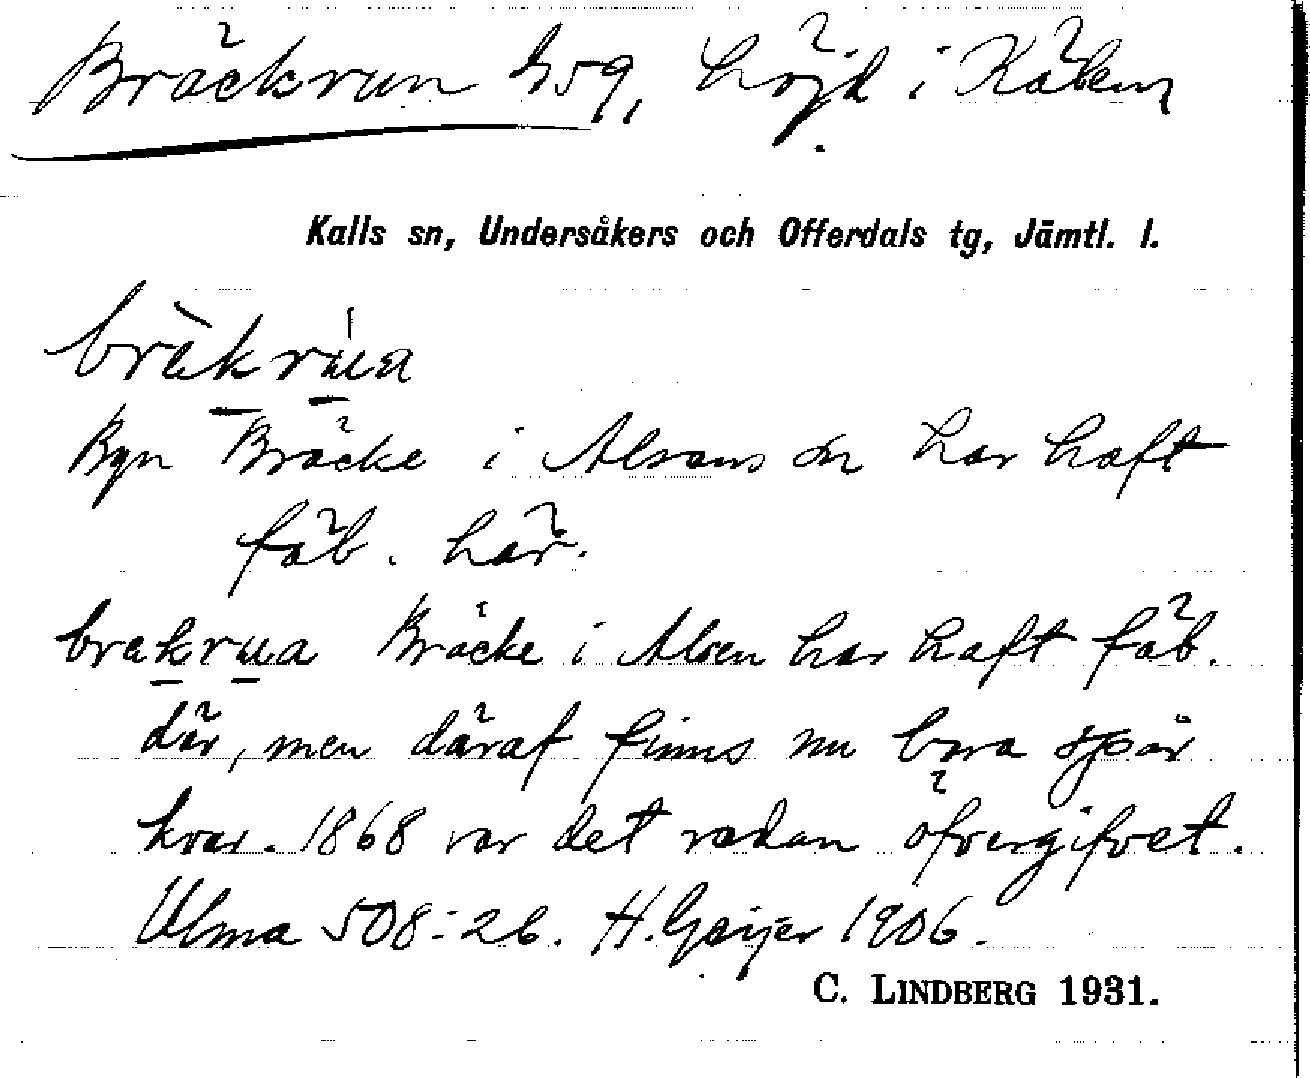 Bräckrun h59, höjd i Kälen
Kalls sn, Undersåkers och Offerdals tg, Jämtl. l.
bräkrua
Byn Bräcke i Alsens sn har haft
fäb. här.
brakrua Bräcke i Alsen har haft fäb.
där, men däraf finns nu bara spår
kvar. 1868 var det redan öfvergifvet.
Ulma 508:26. H. Geijer 1906.
C. LINDBERG 1931.